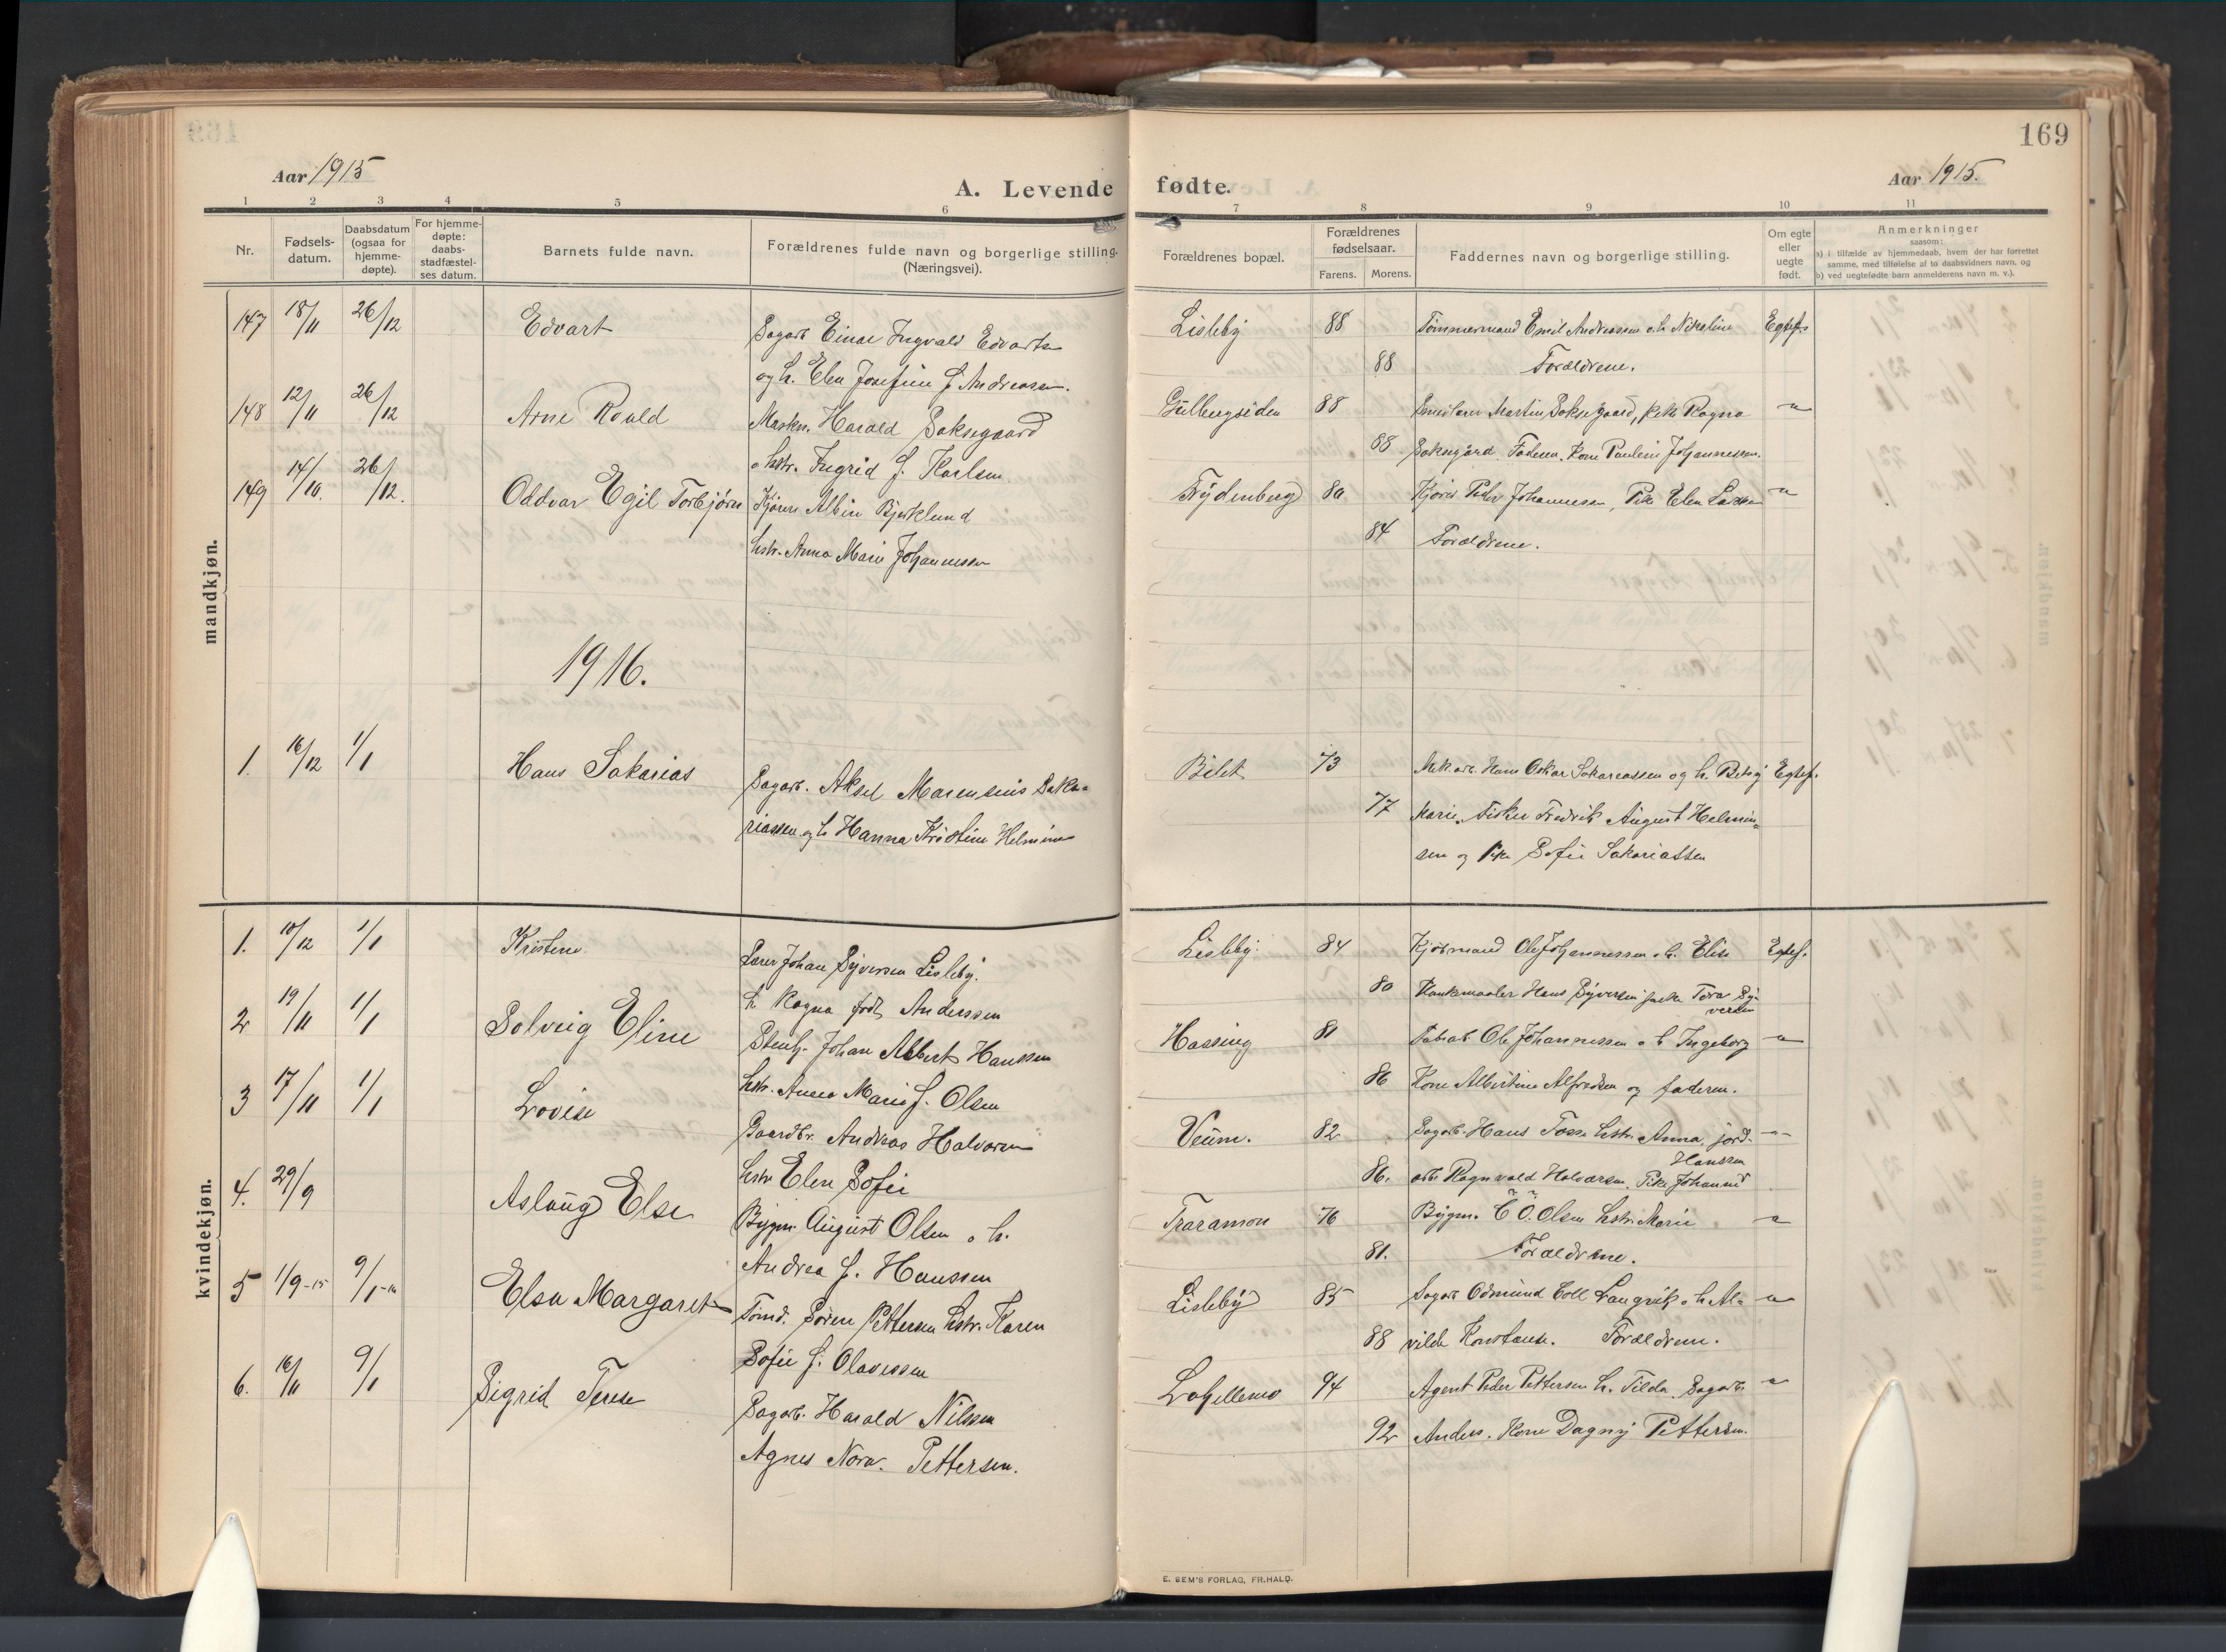 169
Aar 1915
A. Levende fødte.
Aar 1915.
1 2 3 4 5 6 7 8 9 10 11
Nr.
Fødsels-
datum.
Daabsdatum
(ogsaa for
hjemme-
døpte).
For hjemme-
døpte:
daabs-
stadfæstel-
ses datum.
Barnets fulde navn.
Forældrenes fulde navn og borgerlige stilling.
(Næringsvei).
Forældrenes bopæl.
Forældrenes
fødselsaar.
Farens. Morens.
Faddernes navn og borgerlige stilling.
Om egte
eller
uegte
født.
Anmerkninger
saasom:
a) i tilfælde av hjemmedaab, hvem der har forrettet
samme, med tilføielse af to daabsvidners navn, og
b) ved uegtefødte barn anmelderens navn m. v.).
mandkjøn.
147 18/11 26/12 Edvart
Sagarb. Einar Ingvald Edvarts
og h. Elen Josefine f. Andreassen.
Lisleby 88
88
Tømmermand Emil Andreassen o. h. Nikoline Egtef.
Forældrene.
148 12/11 26/12 Arne Roald
Maskn. Harald Saksegaard
o hstr. Ingrid f. Karlsen.
Gulbergsiden 88
88
Martin Saksegaard, pike Ragna
Saksegård. Faderen. Kone Pauline Johannessen.
149 14/10. 26/12. Oddvar Egil Torbjørn
Kjører Albin Bjørklund
hstr. Anna Marie Johannessen
Frydenberg 80
84
Kjører Peder Johannessen, Pike Elen Larsen
Forældrene.
1916.
1. 16/12 1/1 Hans Sakarias
Sagarb. Aksel Marensius Saka-
riassen og h Hanna Kristine Helmine
Bilet 73
77
Mek. arb. Hans Oskar Sakareassen og h. Betsy Egtef.
Marie. Fisker Fredrik August Helmin-
sen og Pike Sofie Sakariassen
kvindekjøn.
1. 10/12 1/1 Kristine
Lærer Johan Syversen Lisleby.
h. Ragna født Anderssen
Lisleby 84
80
Kjøbmand Ole Johannessen o. h. Elise Egtef.
Hans Syversen pike Tora Sy-
versen
2 19/11 1/1 Solveig Eline
Stenh. Johan Albert Hanssen
hstr. Anna Marie f. Olsen
Hassing 81
86
Fabrarb. Ole Johannessen o h Ingeborg
Kone Albertine Alfredsen og faderen.
3 17/11 1/1 Lovise
Gaardbr. Andreas Halvorsen
hstr Elen Sofie
Veum. 82
86.
Sagarb. Hans Foss hstr. Anna, jord-
Hanssen
arb. Ragnvald Halvorsen. Pike Johanne
4. 29/9 Aslaug Else
Bygm. August Olsen o h.
Andrea f. Hanssen
Traramon 76
81.
Bygm. C O. Olsen hstr. Marie
Forældrene.
5 1/9-15 9/1-16 Elsa Margaret
Tømd. Søren Pettersen hstr. Karen
Sofie f. Olavessen
Lisleby 85
88
Sagarb Odmund Coll Langvik o h Al-
vilde Konstanse. Forældrene.
6. 16/11 9/1 Sigrid Terese
Sagarb. Harald Nilssen
Agnes Nora. Pettersen.
Løkellemo 94
92
Agent Peder Pettersen h. Tilda. Sagarb.
Anders. Kone Dagny Pettersen.
E. SEM'S FORLAG, FR.HALD.